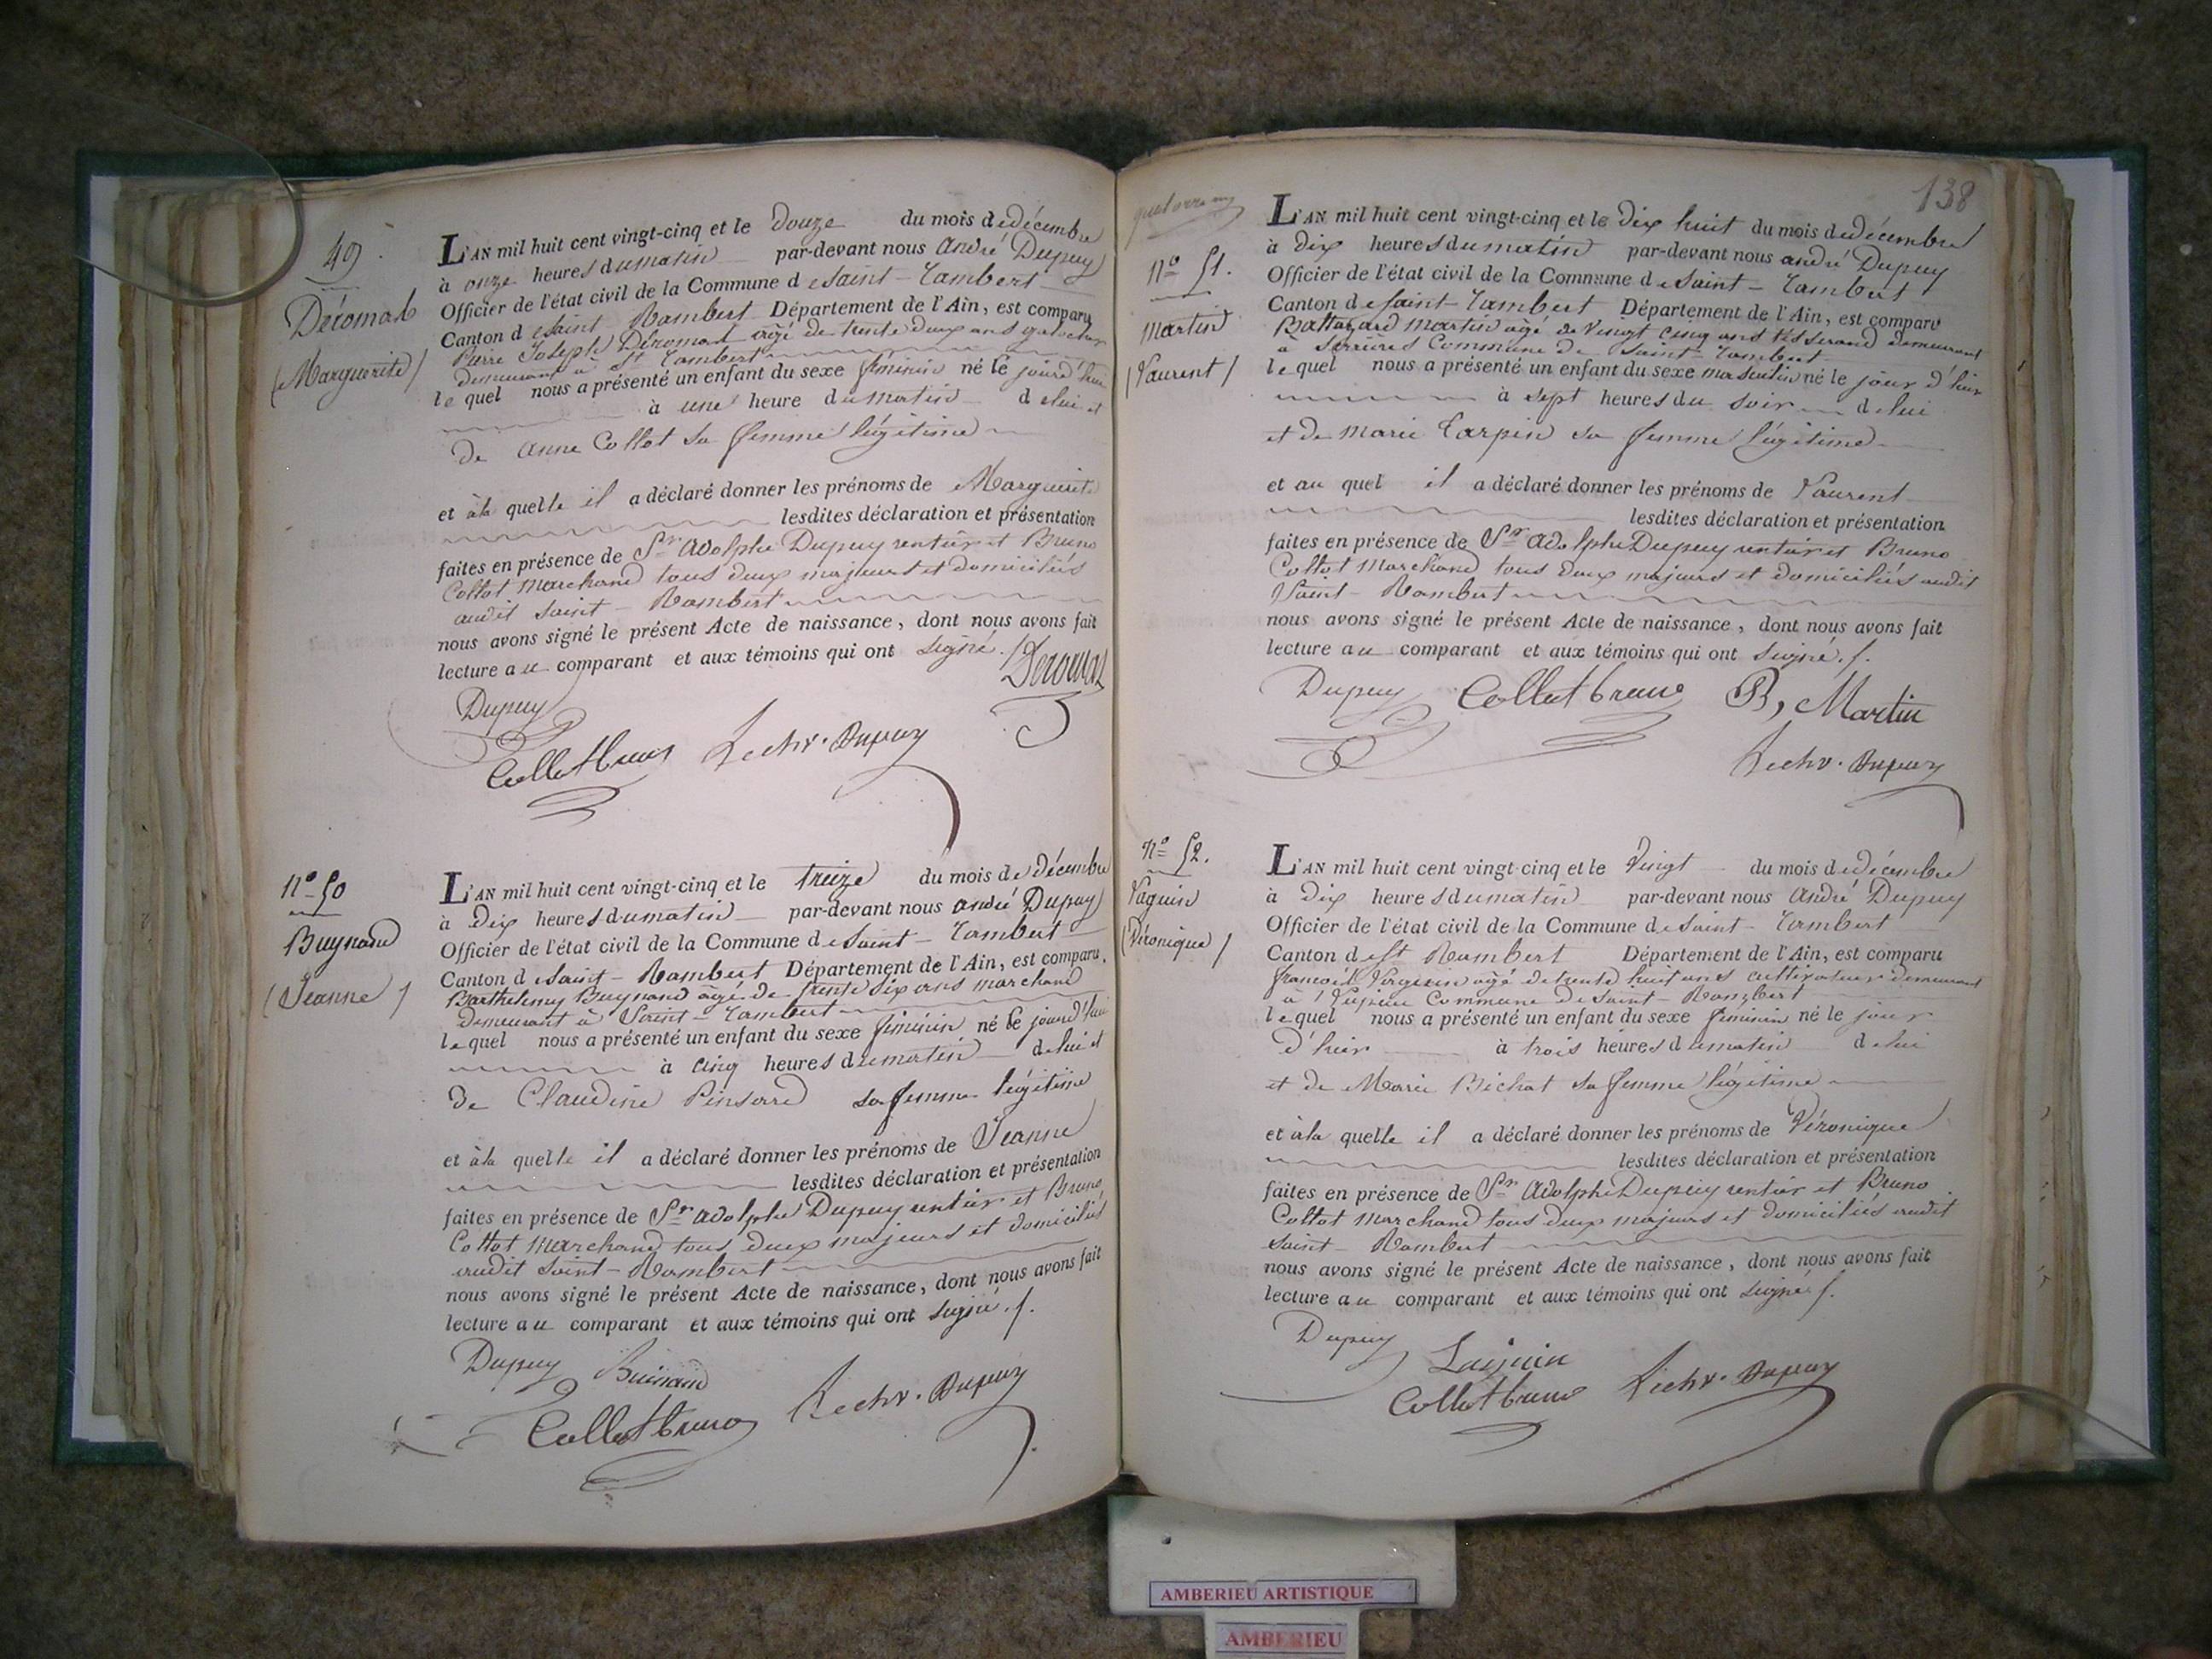 49
Déromas
(Marguerite)
L'AN mil huit cent vingt-cinq et le douze du mois de décembre
à onze heures du matin par-devant nous andré Dupuy
Officier de l'état civil de la Commune de Saint-Rambert
Canton de Saint Rambert Département de l'Ain, est comparu
Pierre Joseph Déromas âgé de trente deux ans galocher
demeurant à St Rambert
le quel nous a présenté un enfant du sexe féminin né le jourd'hui
à une heure du matin de lui et
de anne Collot sa femme légitime
et à la quelle il a déclaré donner les prénoms de Marguerite
lesdites déclaration et présentation
faites en présence de Sr adolphe Dupuy rentier et Bruno
Collot marchand tous deux majeurs et domiciliés
audit Saint-Rambert
nous avons signé le présent Acte de naissance, dont nous avons fait
lecture au comparant et aux témoins qui ont signé.
Deromas
Dupuy
Collot bruno
Dupuy
N° 50
Buynand
(Jeanne)
L'AN mil huit cent vingt-cinq et le treize du mois de décembre
à dix heures du matin par-devant nous andré Dupuy
Officier de l'état civil de la Commune de Saint-Rambert
Canton de Saint-Rambert Département de l'Ain, est comparu
Barthelemy Buynand âgé de trente six ans marchand
demeurant à Saint-Rambert
le quel nous a présenté un enfant du sexe féminin né le jourd'hui
à cinq heures du matin de lui et
de Claudine Pinsard sa femme légitime
et à la quelle il a déclaré donner les prénoms de Jeanne
lesdites déclaration et présentation
faites en présence de Sr adolphe Dupuy rentier et Bruno
Collot marchand tous deux majeurs et domiciliés
audit Saint-Rambert
nous avons signé le présent Acte de naissance, dont nous avons fait
lecture au comparant et aux témoins qui ont signé.
Dupuy
Collot bruno
Dupuy
138
N° 51.
Martin
(Laurent)
L'AN mil huit cent vingt-cinq et le dix huit du mois de décembre
à dix heures du matin par-devant nous andré Dupuy
Officier de l'état civil de la Commune de Saint-Rambert
Canton de Saint-Rambert Département de l'Ain, est comparu
Baltazard Martin âgé de vingt cinq ans tisserand demeurant
à Serrières Commune de Saint-Rambert
le quel nous a présenté un enfant du sexe masculin né le jour d'hier
à sept heures du soir de lui
et de Marie Tarpin sa femme légitime
et au quel il a déclaré donner les prénoms de Laurent
lesdites déclaration et présentation
faites en présence de Sr adolphe Dupuy rentier et Bruno
Collot marchand tous deux majeurs et domiciliés audit
Saint-Rambert
nous avons signé le présent Acte de naissance, dont nous avons fait
lecture au comparant et aux témoins qui ont signé.
Dupuy Collot bruno B, Martin
Dupuy
N° 52.
Laguin
(Véronique)
L'AN mil huit cent vingt-cinq et le vingt du mois de décembre
à dix heures du matin par-devant nous andré Dupuy
Officier de l'état civil de la Commune de Saint-Rambert
Canton de St Rambert Département de l'Ain, est comparu
françois Laguin âgé de trente huit ans cultivateur demeurant
à Commune de Saint-Rambert
le quel nous a présenté un enfant du sexe féminin né le jour
d'hier à trois heures du matin de lui
et de Marie Bichat sa femme légitime
et à la quelle il a déclaré donner les prénoms de Véronique
lesdites déclaration et présentation
faites en présence de Sr adolphe Dupuy rentier et Bruno
Collot marchand tous deux majeurs et domiciliés audit
Saint-Rambert
nous avons signé le présent Acte de naissance, dont nous avons fait
lecture au comparant et aux témoins qui ont signé.
Dupuy
Laguin
Collot bruno
Dupuy
AMBERIEU ARTISTIQUE
AMBERIEU